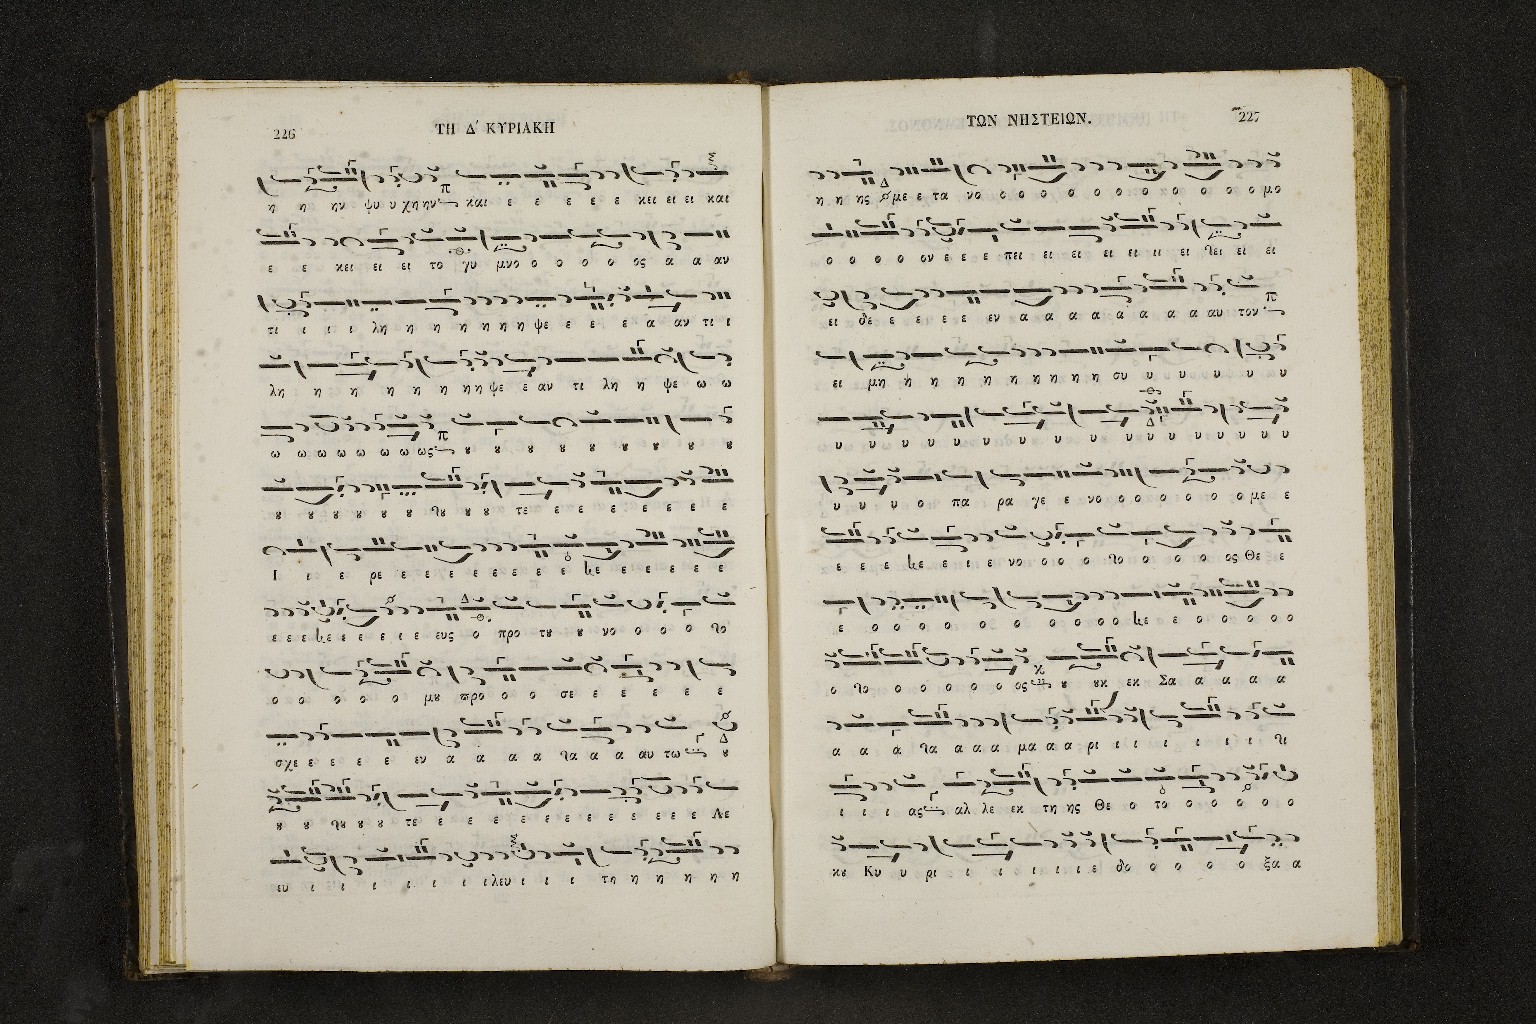 226
ΤΗ Δ' ΚΥΡΙΑΚΗ
η η ην ψυ υ χη ην και ε ε ε ε ε κει ει ει και
ε ε κει ει ει το γυ μνο ο ο ο ο ος α α αν
τι ι ι ι λη η η η η η η ψε ε ε ε α αν τι ι
λη η η η η η η η ψε ε αν τι λη η ψε ω ω
ω ω ω ω ω ω ω ως ȣ ȣ ȣ ȣ ȣ ȣ ȣ ȣ ȣ
ȣ ȣ ȣ ȣ ȣ ȣ ȣ ȣ τε ε ε ε ε ε ε ε
Ι ι ε ρε ε ε ε ε ε ε ε ε ε ε ε ε ε
ε ε ε ε ε ε ε ι ε ευς ο προ τȣ ȣ νο ο ο ο το
ο ο ο ο ο μȣ προ ο ο σε ε ε ε ε ε
σχε ε ε ε ε εν α α α α τα α α αυ τω ȣ
ȣ ȣ ȣ ȣ τε ε ε ε ε ε ε ε ε ε ε ε Λε
ευ ι ι ι ι ι ιλευ ι ι ι τη η η η η η
ΤΩΝ ΝΗΣΤΕΙΩΝ.
227
η η ης ο με ε τα νο ο ο ο ο ο ο ο ο ο ο ο μο
ο ο ο ο ον ε ε ε πει ει ει ει ει ει ει ει τει ει ει
ει δε ε ε ε ε εν α α α α α α α α αυ τον
ει μη η η η η η η η η η συ υ υ υ υ υ υ
υ υ υ υ υ υ υ υ υ υ υ υ υ υ υ υ
υ υ υ ο πα ρα γε ε νο ο ο ο ο ο ο ο με ε
ε ε ε ε ε ι ε νο ο ο ο το ο ο ο ο ος Θε ε
ε ο ο ο ο ο ο ο ο ο ο ε ε ο ο ο ο ο
ο το ο ο ο ο ο ο ος ȣ ȣκ εκ Σα α α α α
α α α τα α α α μα α α ρι ι ι ι ι ι ι τι
ι ι ι ας αλ λε εκ τη ης Θε ο το ο ο ο ο ο
κȣ Κυ υ ρι ι ι ι ι ι ε δο ο ο ο ο ξα α